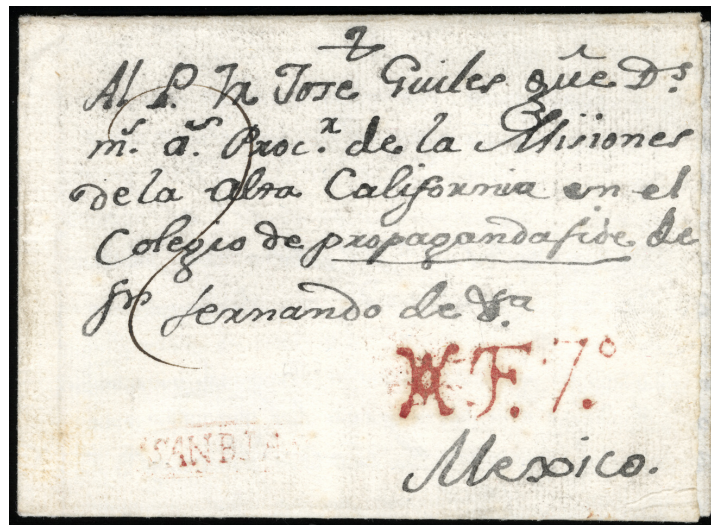 Al P. Fr Jose Guiles qũe D.s
m.s a.s Proc.r de la Misiones
de la Alta California en el
Colegio de propagandafide de
Sn fernando de
F. 7.º
SAN BLAS
Mexico.